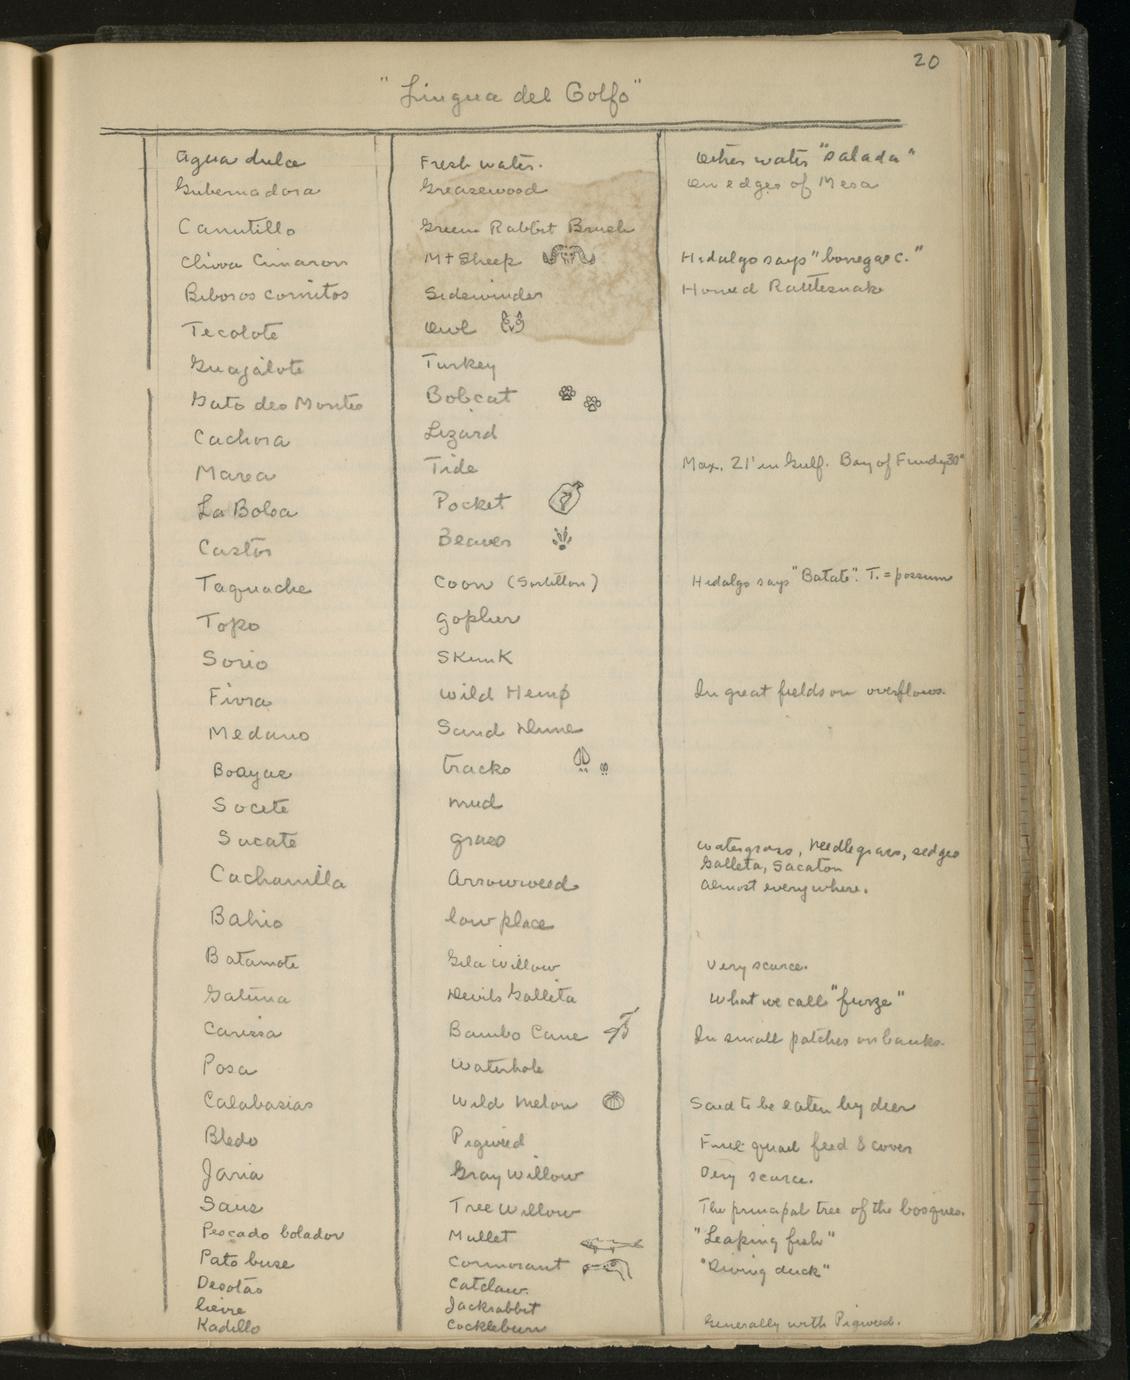 20
"Lingua del Golfo"
Agua dulce Fresh water. Other water "salada"
Gubernadora Greasewood On edges of Mesa
Canutillo Green Rabbit Brush
Chiva Cimaron Mt Sheep Hidalgo says "
Biboros cornitos Sidewinder Horned Rattlesnake
Tecolote Owl
Guajalote Turkey
Gato des Montes Bobcat
Cachora Lizard
Marea Tide Max. 21' in Gulf. Bay of Fundy
La Bolsa Pocket
Castor Beaver
Taquache Coon ( ) Hidalgo says "Batate". T. = possum
Topo gopher
Sorio Skunk
Fivra Wild Hemp In great fields on overflows.
Medano Sand Dune
tracks
Socete mud
Sacate grass watergrass, needlegrass, sedges
Galleta, Sacaton
Cachanilla Arrowweed Almost everywhere.
Bahio low place
Batamote Gila Willow Very scarce.
Gatuna Devils Galleta What we call "furze"
Carissa Bambo Cane In small patches on banks.
Posa Waterhole
Calabasias Wild Melon Said to be eaten by deer
Bledo Pigweed Fine quail feed & cover
Jaria Gray Willow Very scarce.
Saus Tree Willow The principal tree of the bosques.
Pescado bolador Mullet "Leaping fish"
Pato buse Cormorant "Diving duck"
Desotas Catclaw
lievre Jackrabbit
Kadillo Cockleburr Generally with Pigweed.